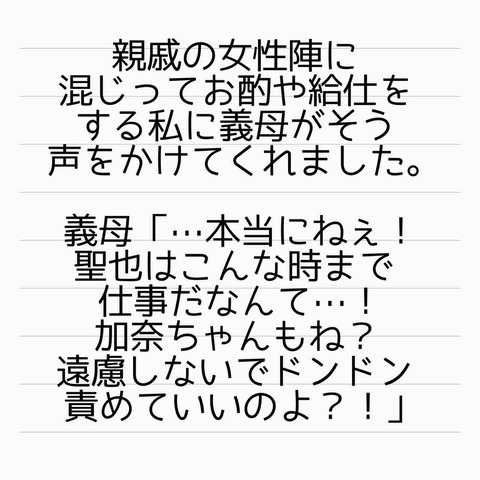 親戚の女性陣に
混じってお酌や給仕を
する私に義母がそう
声をかけてくれました。
義母「…本当にねぇ！
聖也はこんな時まで
仕事だなんて…！
加奈ちゃんもね？
遠慮しないでドンドン
責めていいのよ？！」